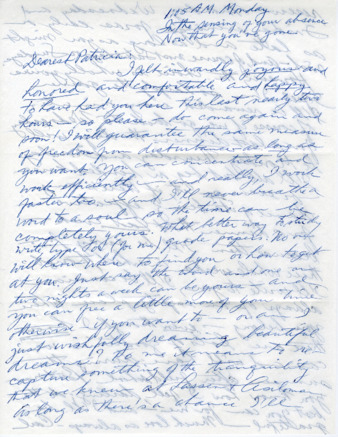 1:25 A.M. Monday
In the pensing of your absence
Now that you're gone.
Dearest Patricia:
I felt inwardly joyous and
honored and comfortable and happy
to have had you here this last nearly two
hours — so please — do come again and
soon! I will guarantee the same measure
of freedom from disturbance as long as
you want. You can concentrate and
work efficiently — I really, I work
faster too — and I'll never breathe a
word to a soul — so the time can be
completely yours. What better way to study
write, type, and (for me) grade papers. No one
will know where to find you or how to get
at you. Just say the word and one or
two nights a week can be yours — and
you can free a little more of your time
otherwise if you want to — or am I
just wishfully dreaming beautiful
dreams? Do me it means to
capture something of the tranquility
that we knew at Lassen & Asilomar
As long as there's a chance I'll